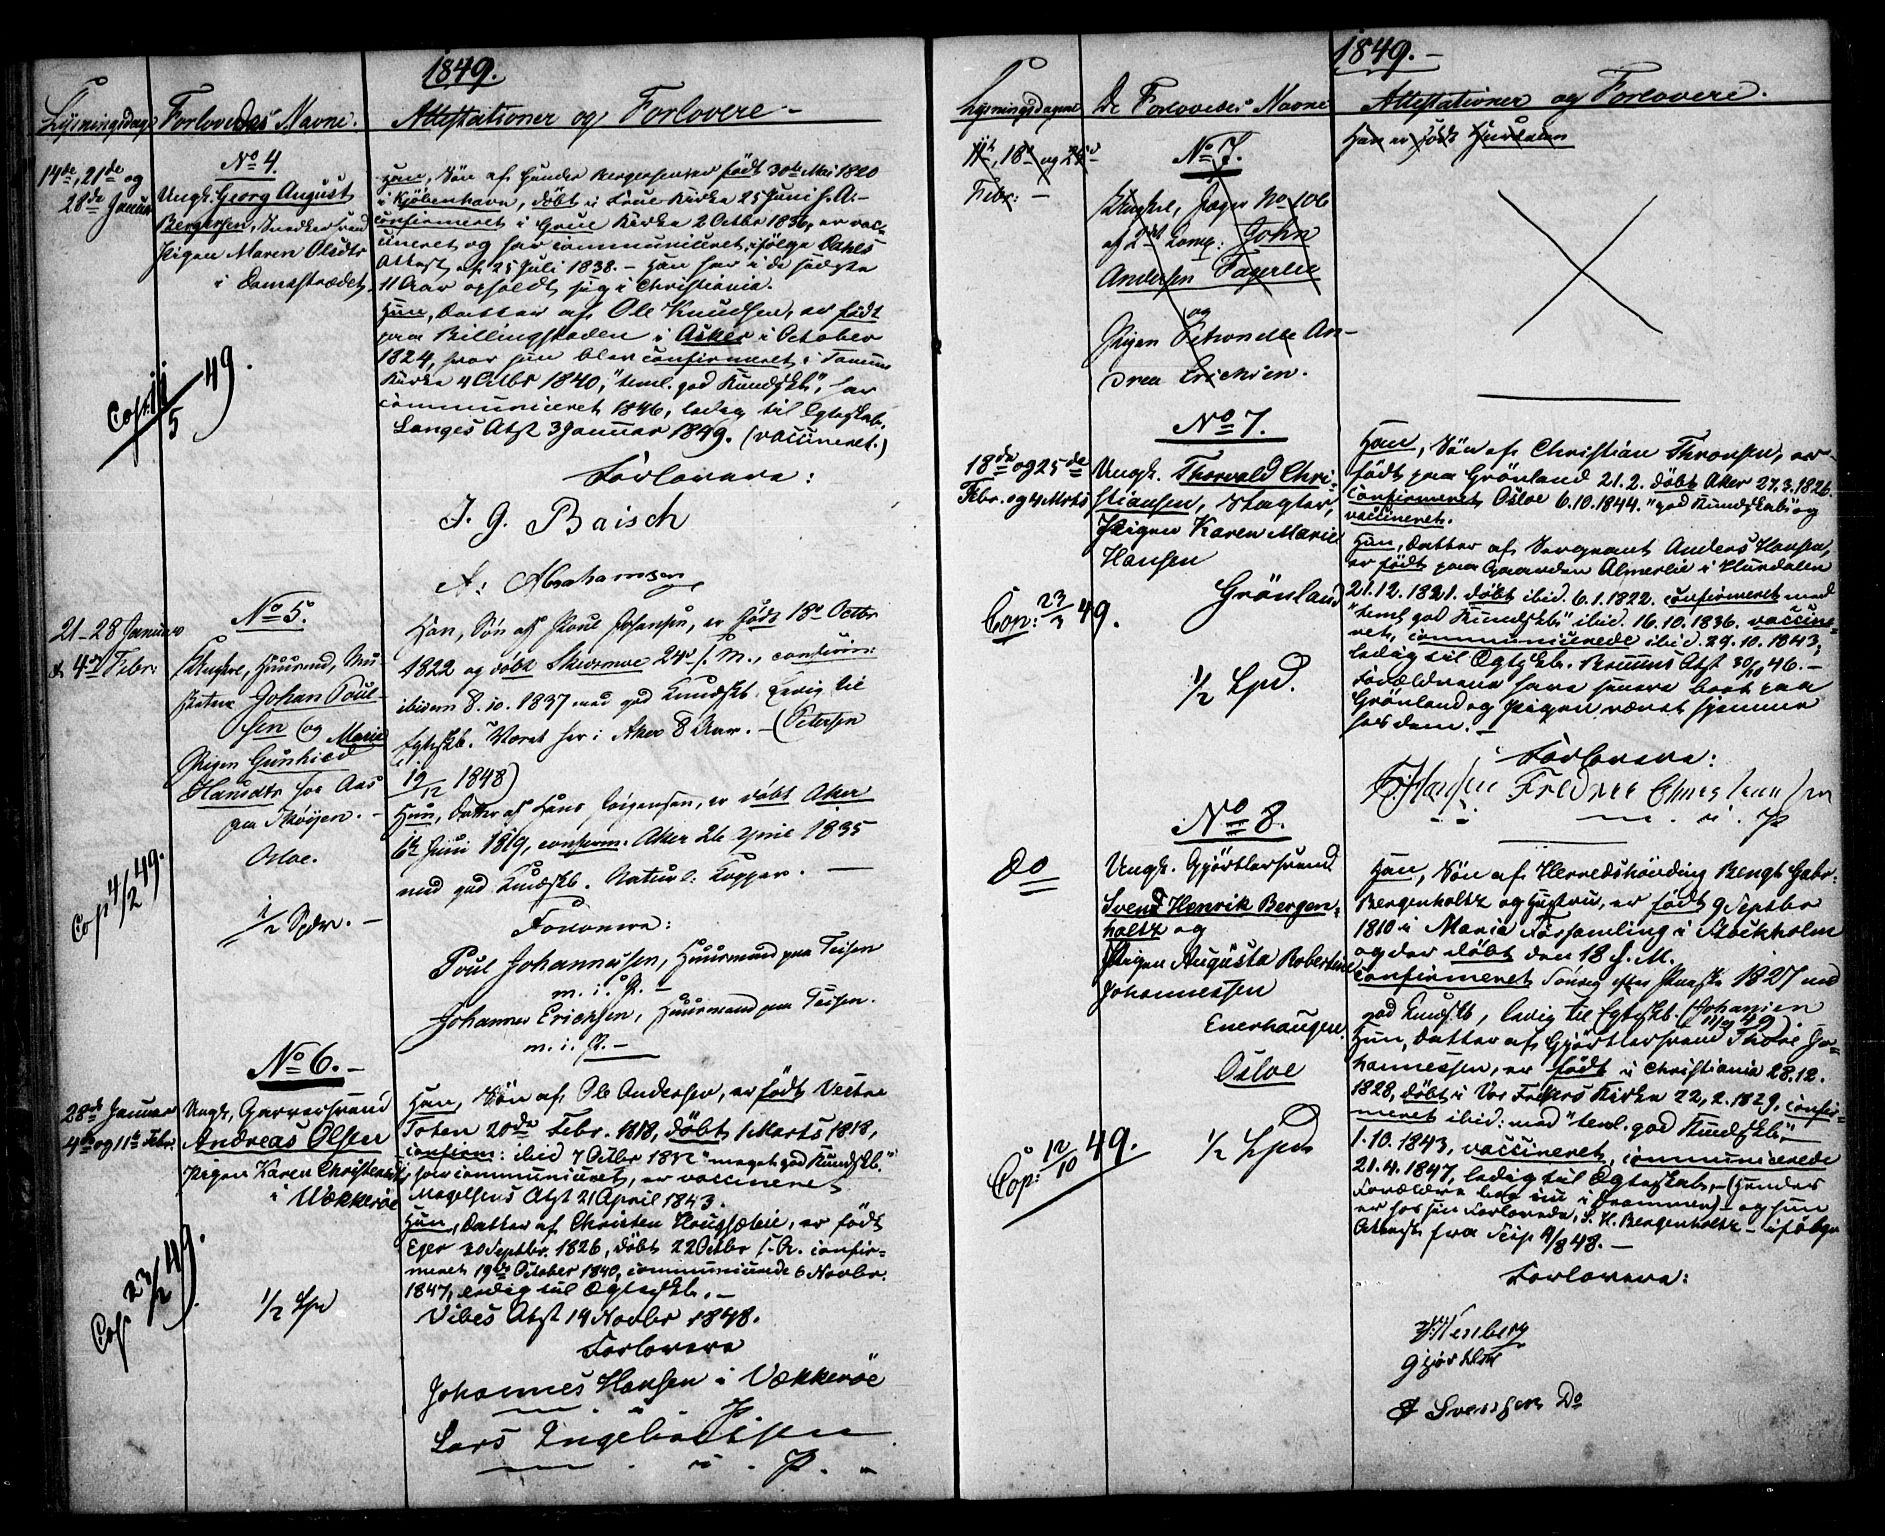 1849.
Lysningsdage Forlovedes Navne. Attestationer og Forlovere –
14de, 21de og
28de Januar
No 4.
Ungk. Georg August
Bergersen, Snedkersvend
Pigen Maren Olsdtr
i Damstrædet.
Cop. 11/5 49.
Han, Søn af Gunder Bergersen er født 30te Mai 1820
i Kjöbenhavn, döbt i Frue Kirke 25 Juni s. A. –
confirmeret i Grue Kirke 2 Octbr 1836, er vac-
cineret og har communiceret, ifölge Dahls
Attest af 25 Juli 1838. – Han har i de sidste
11 Aar opholdt sig i Christiania.
Hun, Datter af Ole Knudsen, er født
paa Billingstaden i Asker i October
1824, hvor hun blev confirmeret i Tanum
Kirke 4 Octbr 1840, "teml. god Kundskb", har
communiceret 1846, ledig til Egteskab.
Langes Atst 3 Januar 1849. (vaccineret.)
Forlovere:
J. G. Baisch
A: Abrahamsen
21–28 Januar
& 4de Febr:
No 5.
Huusmd, Mu-
Johan Poul-
sen og Marie
Pigen Gunhild
Hansdtr fra Aas
paa Thöyen. –
Osloe.
1/2 Spdr. –
Cop 4/2 49.
Han, Søn af Poul Johansen, er født 18de Octbr
1822 og döbt Skedsmoe 24de s. M., confirm:
ibidem 8.10.1837 med god Kundskb. ledig til
Egteskb. Været her i Aker 8 Aar. – (Petersen
19/12 1848)
Hun, Datter af Hans Jörgensen, er döbt Aker
6te Juni 1819, confirm. Aker 26 April 1835
med god Kundskb. Naturl: Kopper. –
Forlovere:
Poul Johannessen, Huusmand paa Teisen
m. i. P. –
Johannes Erichsen, Huusmand paa Teisen.
m. i. P. –
28de Januar
4de og 11te Febr.
No 6. –
Ungk, Garversvend
Andreas Olsen
Pigen Karen Christensdtr
i Vækkerøe
1/2 Spd
Cop 23/2 49.
Han, Søn af Ole Andersen, er født Vestre
Toten 20de Febr. 1818, döbt 1 Marts 1818,
confirm: ibid 7 Octbr 1832 "meget god Kundskb."
har communiceret, er vaccineret
Magelsens Atst 21 April 1843.
Hun, Datter af Christen Hougsæteie, er født
Eger 20 Septbr. 1826, döbt 22 Octbr s. A. confir-
meret 19de October 1840, communicerede 6 Novbr.
1847, ledig til Egteskb. –
Vibes Atst 14 Novbr 1848.
Forlovere
Johannes Hansen i Vækkeröe
Lars Ingebretsen
m. i. P.
1849. –
Lysningsdagene De Forlovedes Navne Attestationer og Forlovere.
11te, 18de og 25de
Febr: –
No 7.
Jæger No 106
af 2det Comp: John
Andersen Fagerlie
og
Pigen Petronelle An-
drea Erichsen.
Han er født Hurdalen
18de og 25de
Febr. og 4 Marts
No 7.
Ungk. Thorvald Chri-
stiansen, Slagter,
Pigen Karen Marie
Hansen
Grönland
Cop: 23/3 49.
1/2 Spd.
Han, Søn af Christian Thronsen, er
født paa Grönland 21.2. döbt Aker 27.3.1826.
Confirmeret Osloe 6.10.1844. "god Kundskab" og
vaccineret.
Hun, Datter af Sergeant Anders Hansen,
er født paa Gaarden Almerlie i Hurdalen
21.12.1821. döbt ibid. 6.1.1822. confirmeret med
"teml. god Kundskb" ibid. 16.10.1836. vaccine-
ret, communicerede ibid. 29.10.1843,
ledig til Egtskb. Bruuns Atst 30/10 46. –
Forældrene have senere boet paa
Grönland og Pigen været hjemme
hos dem. –
Forlovere:
A. Hansen Fredric Christiansen
m. i. P
Do
No 8.
Ungk. Gjörtlersvend
Svend Henrik Bergen-
holtz og
Pigen Augusta Robertine
Johannessen
Enerhaugen.
Osloe
1/2 Spd
Cop: 12/10 49.
Han, Søn af Herredshövding Bengt Gabr.
Bergenholtz og Hustru, er født 9 Septbr
1810 i Maria Forsamling i Stockholm
og der döbt den 18 s. M.
Confirmeret Söndag efter Paaske 1827 med
god Kundskb, ledig til Egteskb. (Johansen
49).
Hun, Datter af Gjörtlersvend Thore Jo-
hannessen, er født i Christiania 28.12.
1828, döbt i Vor Frelsers Kirke 22.2.1829. confir-
meret ibid: med "teml. god Kundskb",
1.10.1843, vaccineret, communicerede
21.4.1847, ledig til Egteskab, – (Hendes
Forældre boe nu i Drammen) – og hun
er hos sin Forlovede, S. H. Bergenholtz – ifölge
Attest fra 48. –
Forlovere:
Wenberg
Gjörtler
Svensson Do